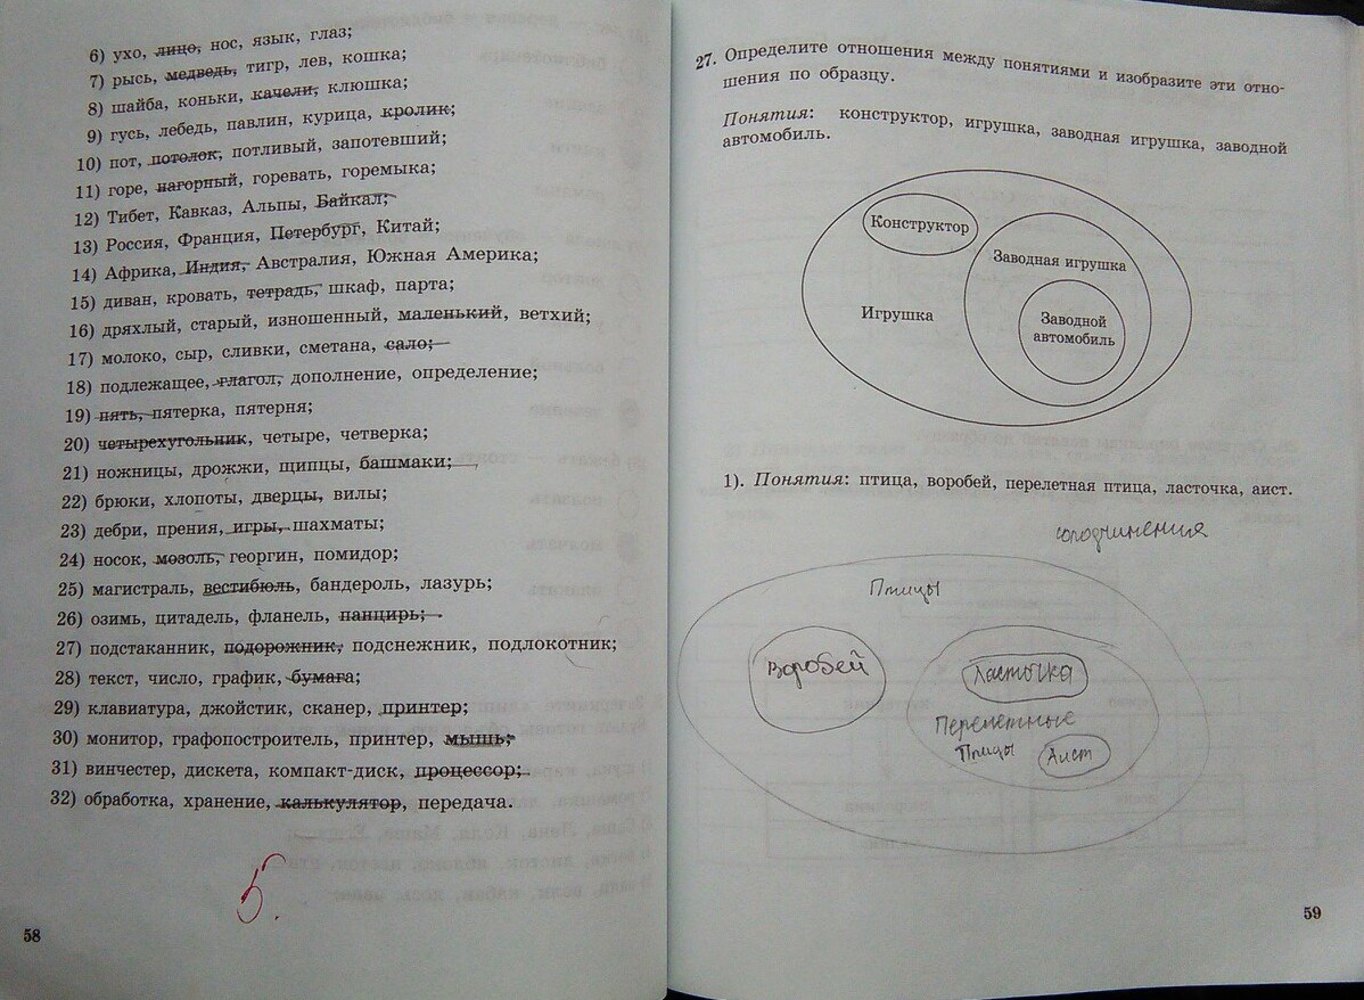 6) ухо, лицо, нос, язык, глаз;
7) рысь, медведь, тигр, лев, кошка;
8) шайба, коньки, качели, клюшка;
9) гусь, лебедь, павлин, курица, кролик;
10) пот, потолок, потливый, запотевший;
11) горе, нагорный, горевать, горемыка;
12) Тибет, Кавказ, Альпы, Байкал;
13) Россия, Франция, Петербург, Китай;
14) Африка, Индия, Австралия, Южная Америка;
15) диван, кровать, тетрадь, шкаф, парта;
16) дряхлый, старый, изношенный, маленький, ветхий;
17) молоко, сыр, сливки, сметана, сало;
18) подлежащее, глагол, дополнение, определение;
19) пять, пятерка, пятерня;
20) четырехугольник, четыре, четверка;
21) ножницы, дрожжи, щипцы, башмаки;
22) брюки, хлопоты, дверцы, вилы;
23) дебри, прения, игры, шахматы;
24) носок, мозоль, георгин, помидор;
25) магистраль, вестибюль, бандероль, лазурь;
26) озимь, цитадель, фланель, панцирь;
27) подстаканник, подорожник, подснежник, подлокотник;
28) текст, число, график, бумага;
29) клавиатура, джойстик, сканер, принтер;
30) монитор, графопостроитель, принтер, мышь;
31) винчестер, дискета, компакт-диск, процессор;
32) обработка, хранение, калькулятор, передача.
5.
58
27. Определите отношения между понятиями и изобразите эти отно-
шения по образцу.
Понятия: конструктор, игрушка, заводная игрушка, заводной
автомобиль.
Конструктор
Заводная игрушка
Игрушка
Заводной
автомобиль
1). Понятия: птица, воробей, перелетная птица, ласточка, аист.
соподчинения
Птицы
Воробей
Ласточка
Перелетные
Птицы
Аист
59